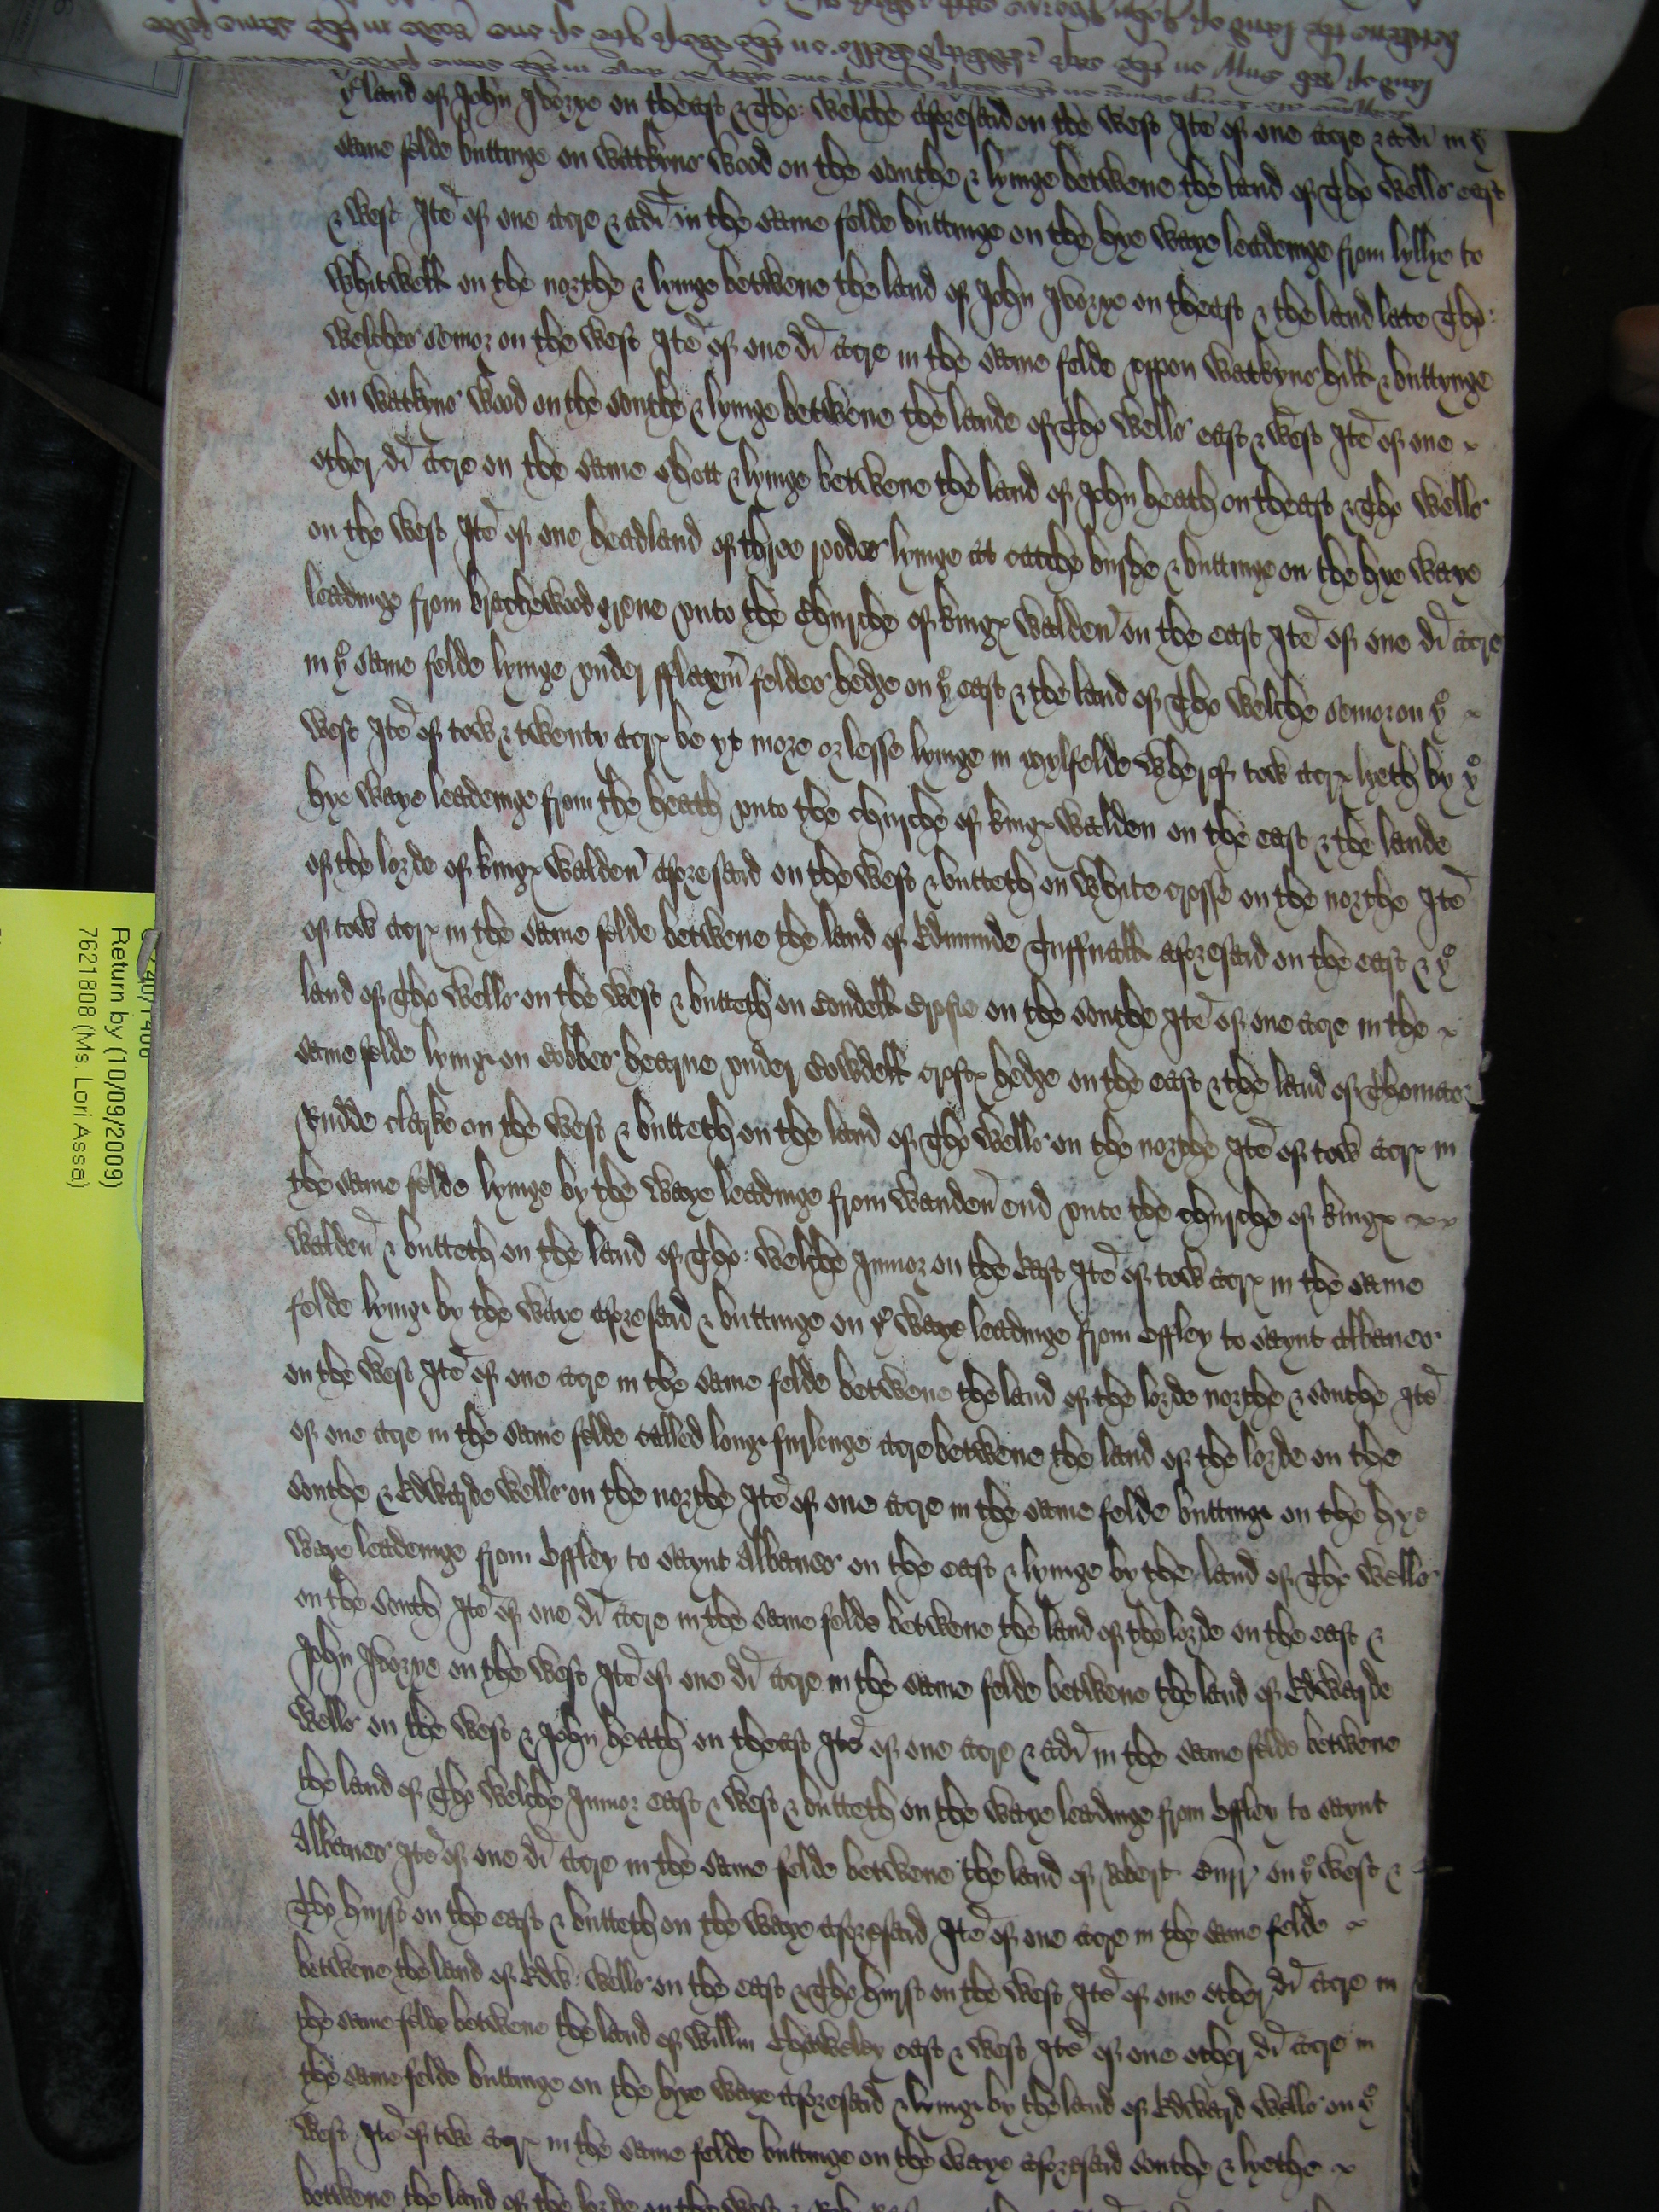 yͤ land of John Ivorye on theast & Tho: Welche aforesaid on the west Itē of one acre & a di in yͤ
same felde buttinge on Watkyns Wood on the southe & lyinge betwene the land of Tho Wells east
& west Itē of one acre & a di in the same felde buttinge on the hye waye leadeinge from lyllye to
Whitwell on the northe & lyinge betwene the land of John Ivorye on theast & the land late Tho:
Welches senior on the west Itē of one di acre in the same felde uppon Watkyns hill & buttynge
on Watkyns Wood on the southe & lyinge betwene the lande of Tho Wells east & west Itē of one
other di acre on the same shott & lyinge betwene the land of John heath on theast & Tho Wells
on the west Itē of one headland of three roodes lyinge at catche bushe & buttinge on the hye waye
leadinge from brechewood grene unto the Churche of kings Walden on the east Itē of one di acre
in yͤ same felde lyinge under feldes hedge on yͤ east & the land of Tho Welche senior on yͤ
west Itē of tow & twenty acrs be yt more or lesse lyinge in mylfelde Wherof tow acrs lyeth by yͤ
hye waye leadeinge from the heath unto the churche of kings Walden on the east & the lande
of the lorde of kings Walden aforesaid on the west & butteth on White crosse on the northe Itē
of tow acrs in the same felde betwene the land of Edmunde Tuffnall aforesaid on the east & yͤ
land of Tho Wells on the west & butteth on Crofte on the southe Itē of one acre in the
same felde lyinge on under Cowdell crofts hedge on the east & the land of Thomas
Rudde clarke on the west & butteth on the land of Tho Wells on the northe Itē of tow acrs in
the same felde lyinge by the waye leadinge from Wanden end unto the churche of kings
Walden & butteth on the land of Tho: Welche Junior on the East Itē of tow acrs in the same
felde lyinge by the waye aforesaid & buttinge on yͤ waye leadinge from Offley to saynt albanes
on the west Itē of one acre in the same felde betwene the land of the lorde northe & southe Itē
of one acre in the same felde called longe furlonge acre betwene the land of the lorde on the
southe & Edwarde Wells on the northe Itē of one acre in the same felde buttinge on the hye
waye leadeinge from Offley to saynt Albanes on the east & lyinge by the land of Tho Wells
on the south Itē of one di acre in the same felde betwene the land of the lorde on the east &
John Ivorye on the west Itē of one di acre in the same felde betwene the land of Edwarde
Wells on the west & John heath on theast Itē of one acre & a di in the same felde betwene
the land of Tho Welche Junior east & west & butteth on the waye leadinge from Offley to saynt
Albanes Itē of one di acre in the same felde betwene the land of Robert on yͤ west &
Tho hurst on the east & butteth on the waye aforesaid Itē of one acre in the same felde
betwene the land of Edw: Wells on the east & Tho hurst on the west Itē of one other di acre in
the same felde betwene the land of Willm east & west Itē of one other di acre in
the same felde buttinge on the hye waye aforesaid & lyinge by the land of Edward Wells on yͤ
west Itē of two acrs in the same felde buttinge on the waye aforesaid southe & lyethe
betwene the land of the lorde on the west
Return by (10/09/2009)
7621808 (Ms. Lori Assa)